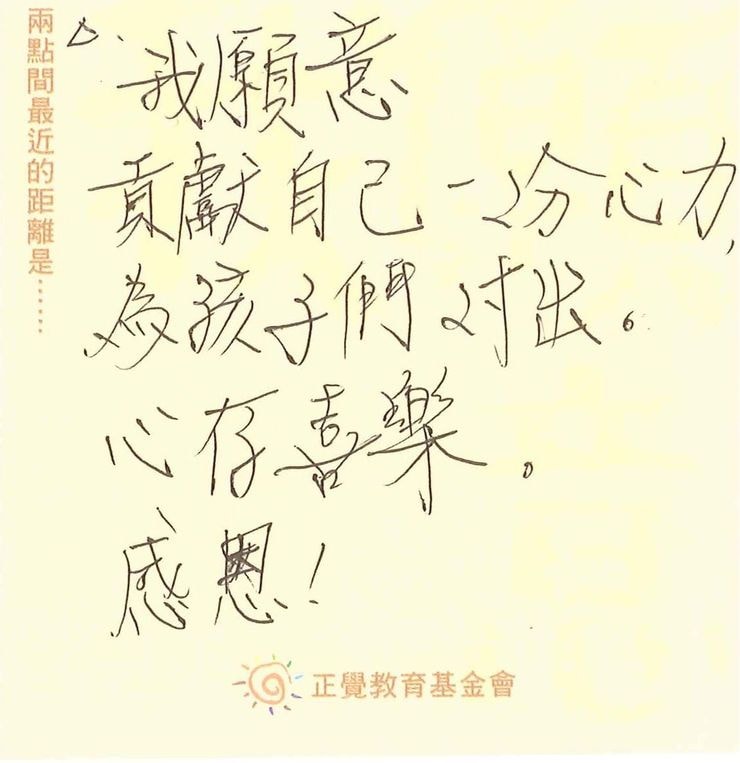 兩點間最近的距離是……
△.
我願意
貢獻自己一份心力,
為孩子們付出。
心存喜樂。
感恩!
正覺教育基金會